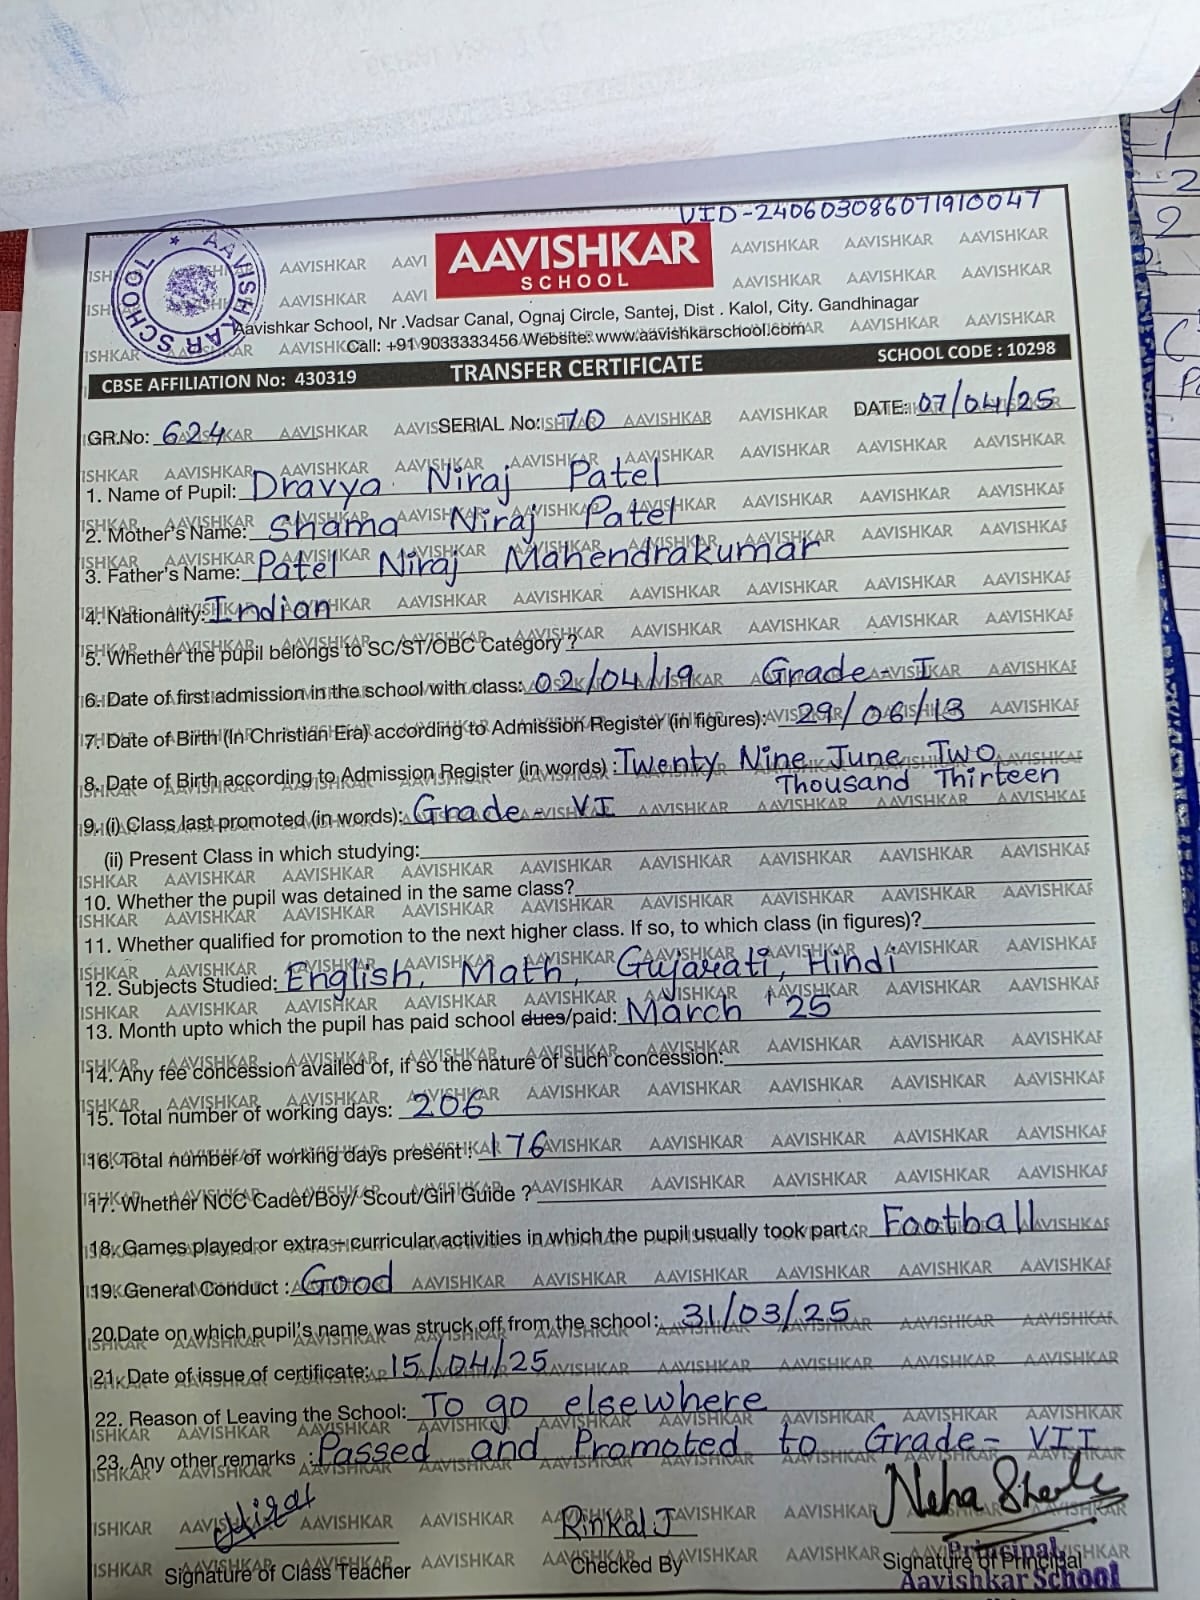 UID-240603086071910047
AAVISHKAR SCHOOL
AAVISHKAR
SCHOOL
Aavishkar School, Nr .Vadsar Canal, Ognaj Circle, Santej, Dist . Kalol, City. Gandhinagar
Call: +91 9033333456 Website: www.aavishkarschool.com
CBSE AFFILIATION No: 430319 TRANSFER CERTIFICATE SCHOOL CODE : 10298
GR.No: 624 SERIAL No: 70 DATE: 07/04/25
1. Name of Pupil: Dravya Niraj Patel
2. Mother's Name: Shama Niraj Patel
3. Father's Name: Patel Niraj Mahendrakumar
4. Nationality: Indian
5. Whether the pupil belongs to SC/ST/OBC Category ?
6. Date of first admission in the school with class: 02/04/19 Grade-I
7. Date of Birth (In Christian Era) according to Admission Register (in figures): 29/06/13
8. Date of Birth according to Admission Register (in words) : Twenty Nine June Two
Thousand Thirteen
9. (i) Class last promoted (in words): Grade - VI
(ii) Present Class in which studying:
10. Whether the pupil was detained in the same class?
11. Whether qualified for promotion to the next higher class. If so, to which class (in figures)?
12. Subjects Studied: English, Math, Gujarati, Hindi
13. Month upto which the pupil has paid school dues/paid: March '25
14. Any fee concession availed of, if so the nature of such concession:
15. Total number of working days: 206
16. Total number of working days present : 176
17. Whether NCC Cadet/Boy/ Scout/Girl Guide ?
18. Games played or extra – curricular activities in which the pupil usually took part : Football
19. General Conduct : Good
20.Date on which pupil's name was struck off from the school: 31/03/25
21. Date of issue of certificate: 15/04/25
22. Reason of Leaving the School: To go elsewhere
23. Any other remarks : Passed and Promoted to Grade- VII
Rinkal J
Signature of Class Teacher Checked By Signature of Principal
Principal
Aavishkar School